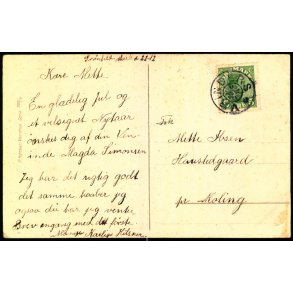 d. 22-12
Kære Mette
En glædelig Jul og
et velsignet Nytaar
ønskes dig af din Ven
inde Magda Simonsen
Jeg har det rigtig godt
det samme haaber jeg
ogsaa du har jeg vente
Brev engang med det første
Mange Kærlige Hilsner
Frk
Mette Ibsen
Hanstedgaard
pr Kolding